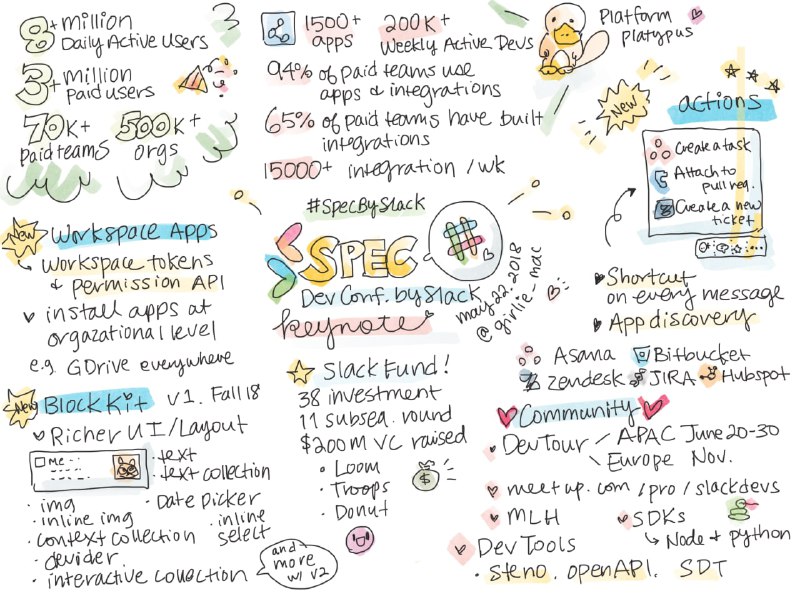 8+ million
Daily Active Users
3+ million
paid users
70K+ 500K+
paid teams orgs
1500+ 200K+
apps Weekly Active Devs
94% of paid teams use
apps & integrations
65% of paid teams have built
integrations
15000+ integration / wk
Platform
platypus
New
actions
Create a task
Attach to
pull req.
Create a new
ticket
Shortcut
on every message
App discovery
Asana Bitbucket
zendesk JIRA Hubspot
#SpecBySlack
SPEC
Dev Conf. by Slack
keynote
may 22. 2018
@girlie_mac
New
Workspace Apps
workspace tokens
& permission API
install apps at
orgazational level
e.g. GDrive everywhere
New
Block Kit v1. Fall 18
Richer UI/Layout
Me
text
text collection
img
Date Picker
inline img
inline
select
context collection
devider
interactive collection
and
more
w/ v2
Slack Fund!
38 investment
11 subseq. round
$200M VC raised
Loom
Troops
Donut
$
Community
Dev Tour APAC June 20-30
Europe Nov.
meetup.com/pro/slackdevs
MLH SDKs
Node & python
Dev Tools
steno. openAPI. SDT